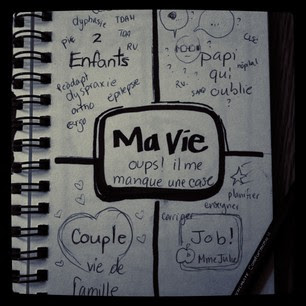 dysphasie TDAH
2
Enfants
dyspraxie
ortho
épilepsie
ergo
? ? ?
papi
hôpital
qui
RV.
oublie
Ma Vie
oups! il me
manque une case
planifier
enseigner
corriger
Couple
vie de
famille
Job!
Mme Julie